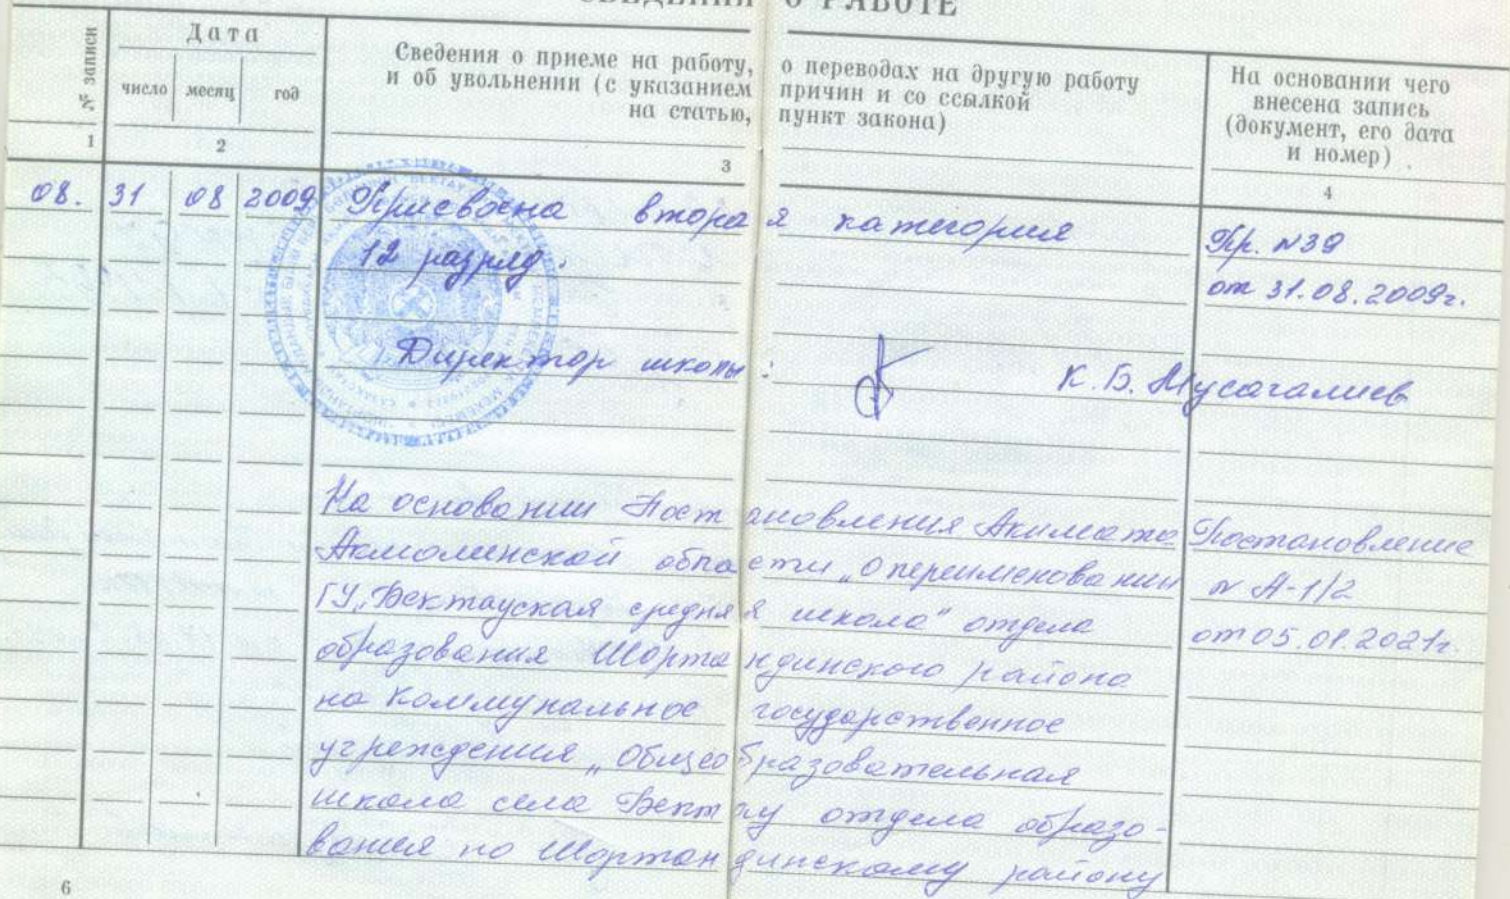 О РАБОТЕ
№ записи
Дата
число месяц год
Сведения о приеме на работу, о переводах на другую работу
и об увольнении (с указанием причин и со ссылкой
на статью, пункт закона)
На основании чего
внесена запись
(документ, его дата
и номер)
1 2 3 4
08. 31 08 2009 Присвоена вторая категория Пр. №39
12 разряд. от 31.08.2009г.
Директор школы: К.Б. Мусагалиев
На основании Постановления Акимата Постановление
Акмолинской области „О переименовании № А-1/2
ГУ „Бектауская средняя школа" отдела от 05.01.2021г.
образования Шортандинского района
на Коммунальное государственное
учреждения „Общеобразовательная
школа села Бектау отдела образо-
вания по Шортандинскому району
6